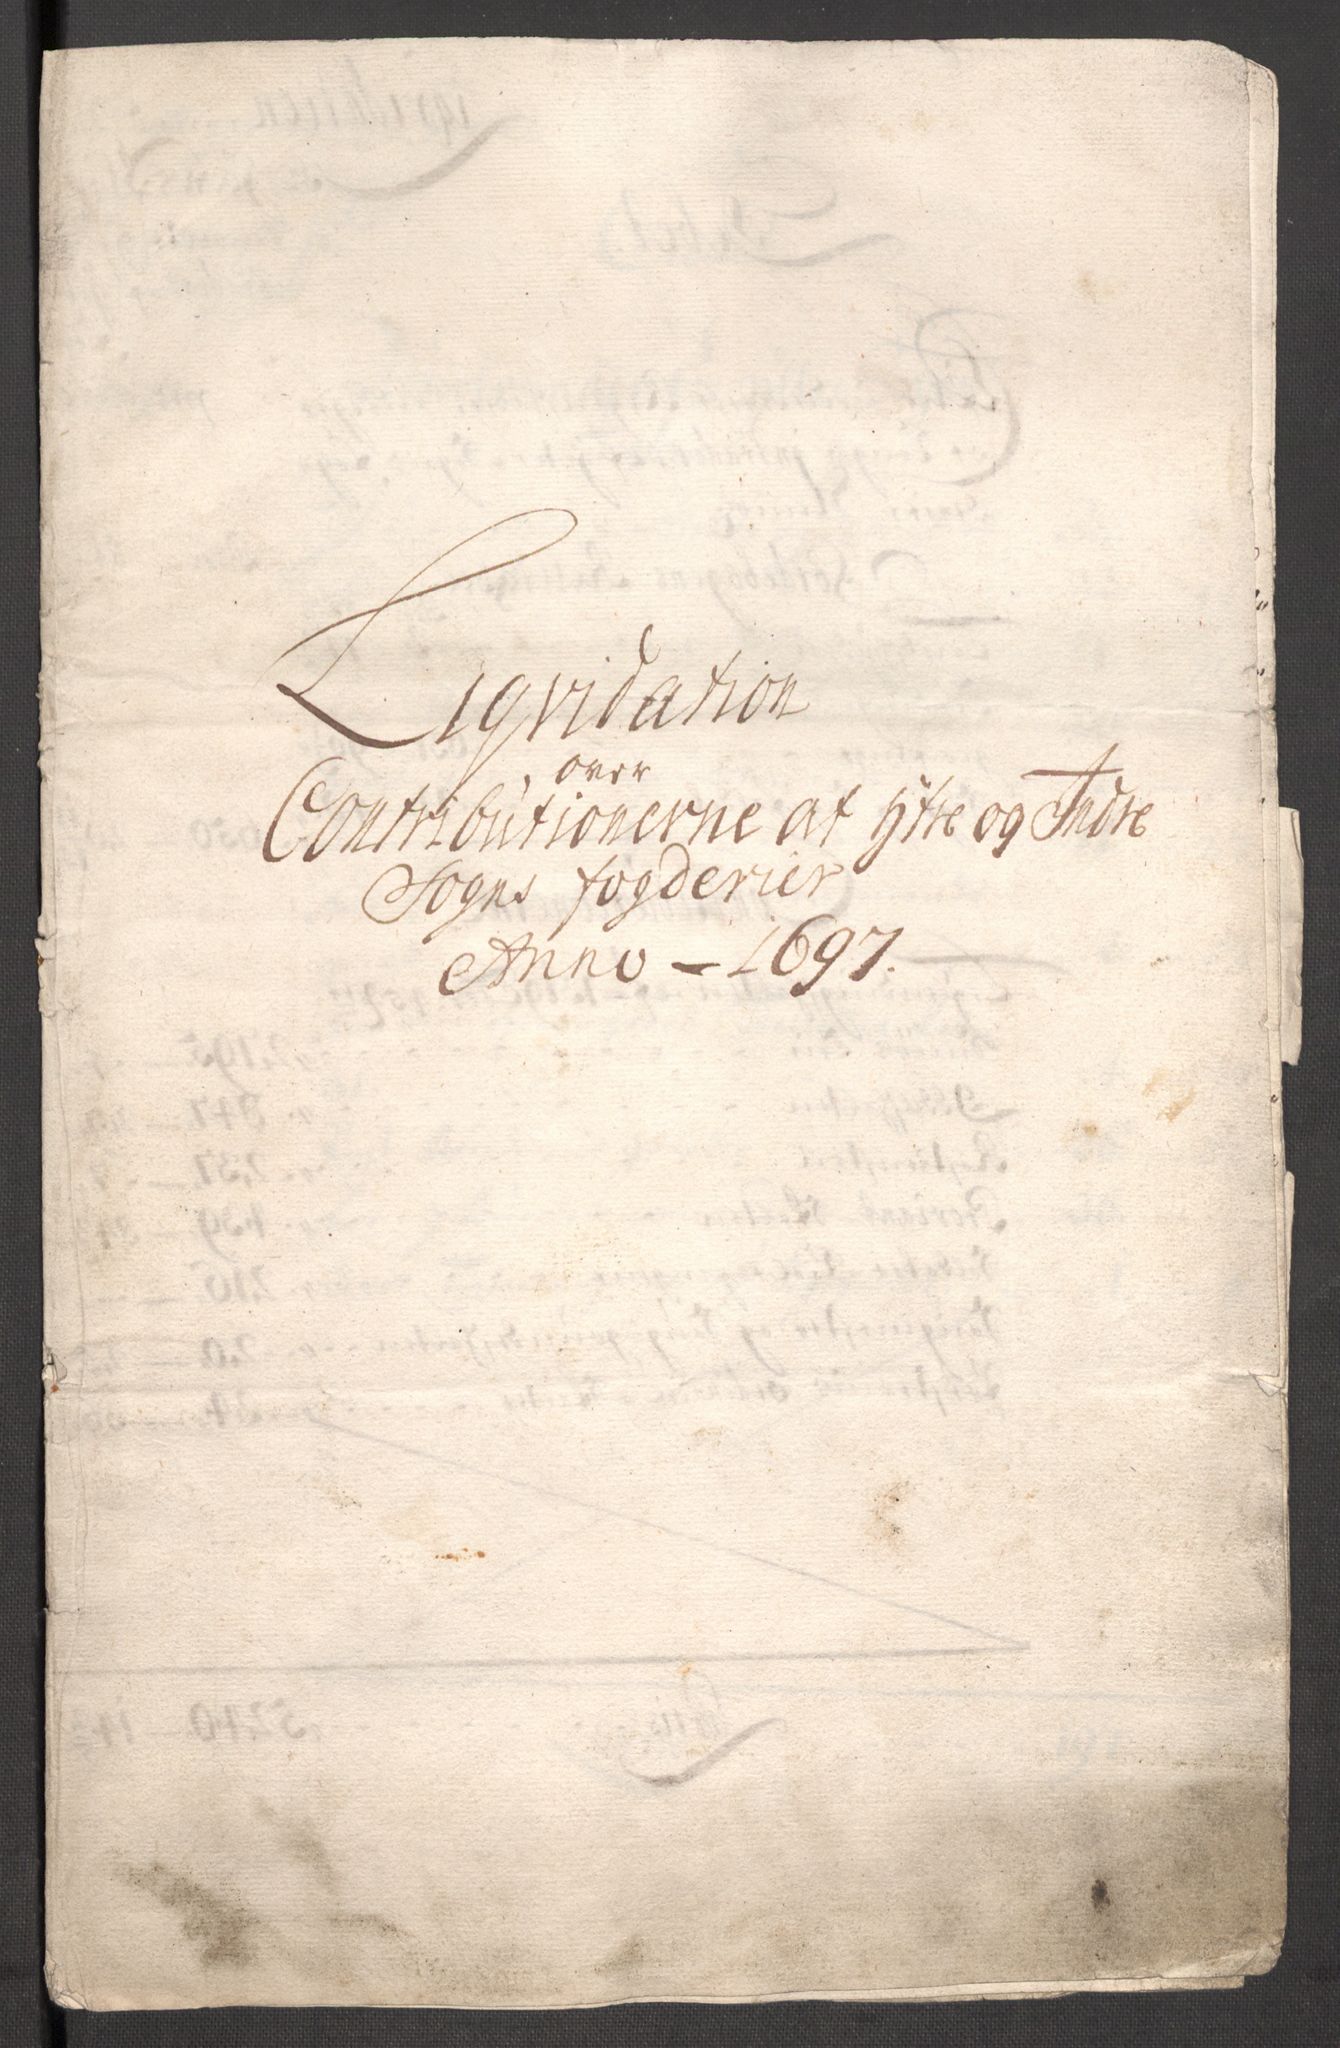 Liqvidation
over
Contributionerne af ytre og Indre
Sogns fogderier
Anno - 1697.